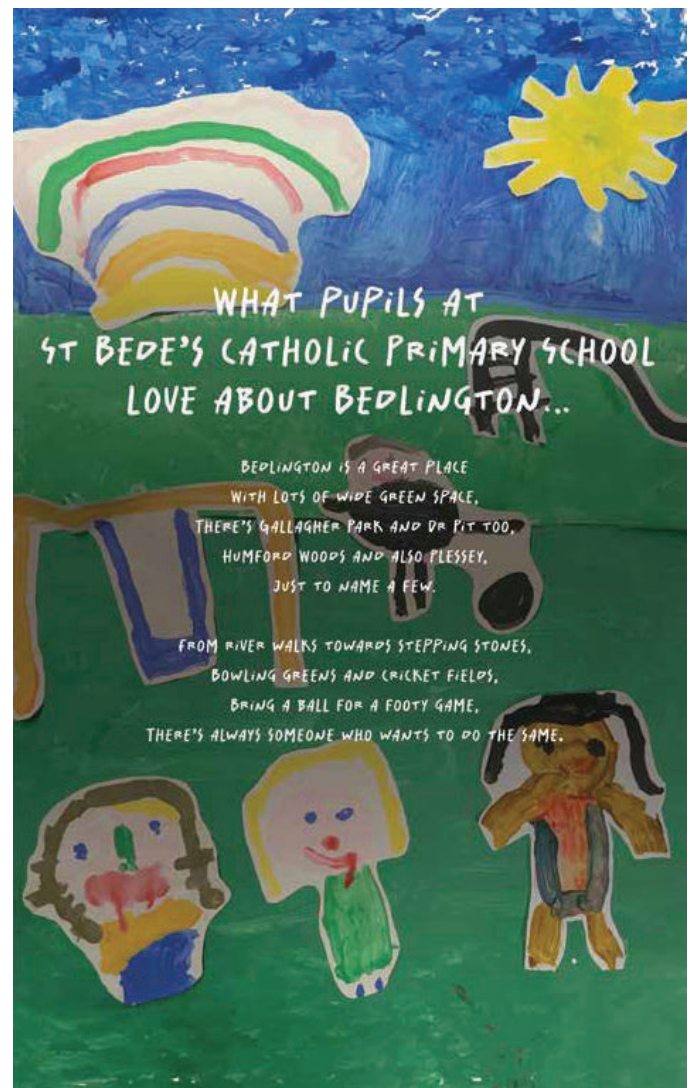 WHAT PUPILS AT
ST BEDE'S CATHOLIC PRIMARY SCHOOL
LOVE ABOUT BEDLINGTON...
BEDLINGTON IS A GREAT PLACE
WITH LOTS OF WIDE GREEN SPACE,
THERE'S GALLAGHER PARK AND DR PIT TOO,
HUMFORD WOODS AND ALSO PLESSEY,
JUST TO NAME A FEW.
FROM RIVER WALKS TOWARDS STEPPING STONES,
BOWLING GREENS AND CRICKET FIELDS,
BRING A BALL FOR A FOOTY GAME,
THERE'S ALWAYS SOMEONE WHO WANTS TO DO THE SAME.